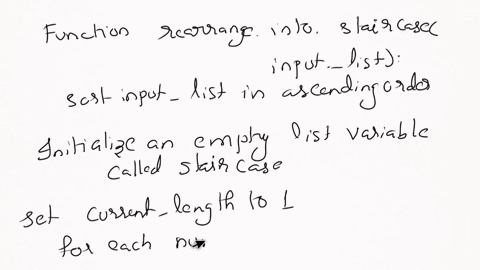 Function rearrange.into.staircase(
input_list):
sort input_list in ascending order
Initialize an empty list variable
called staircase
set current_length to 1
for each nu